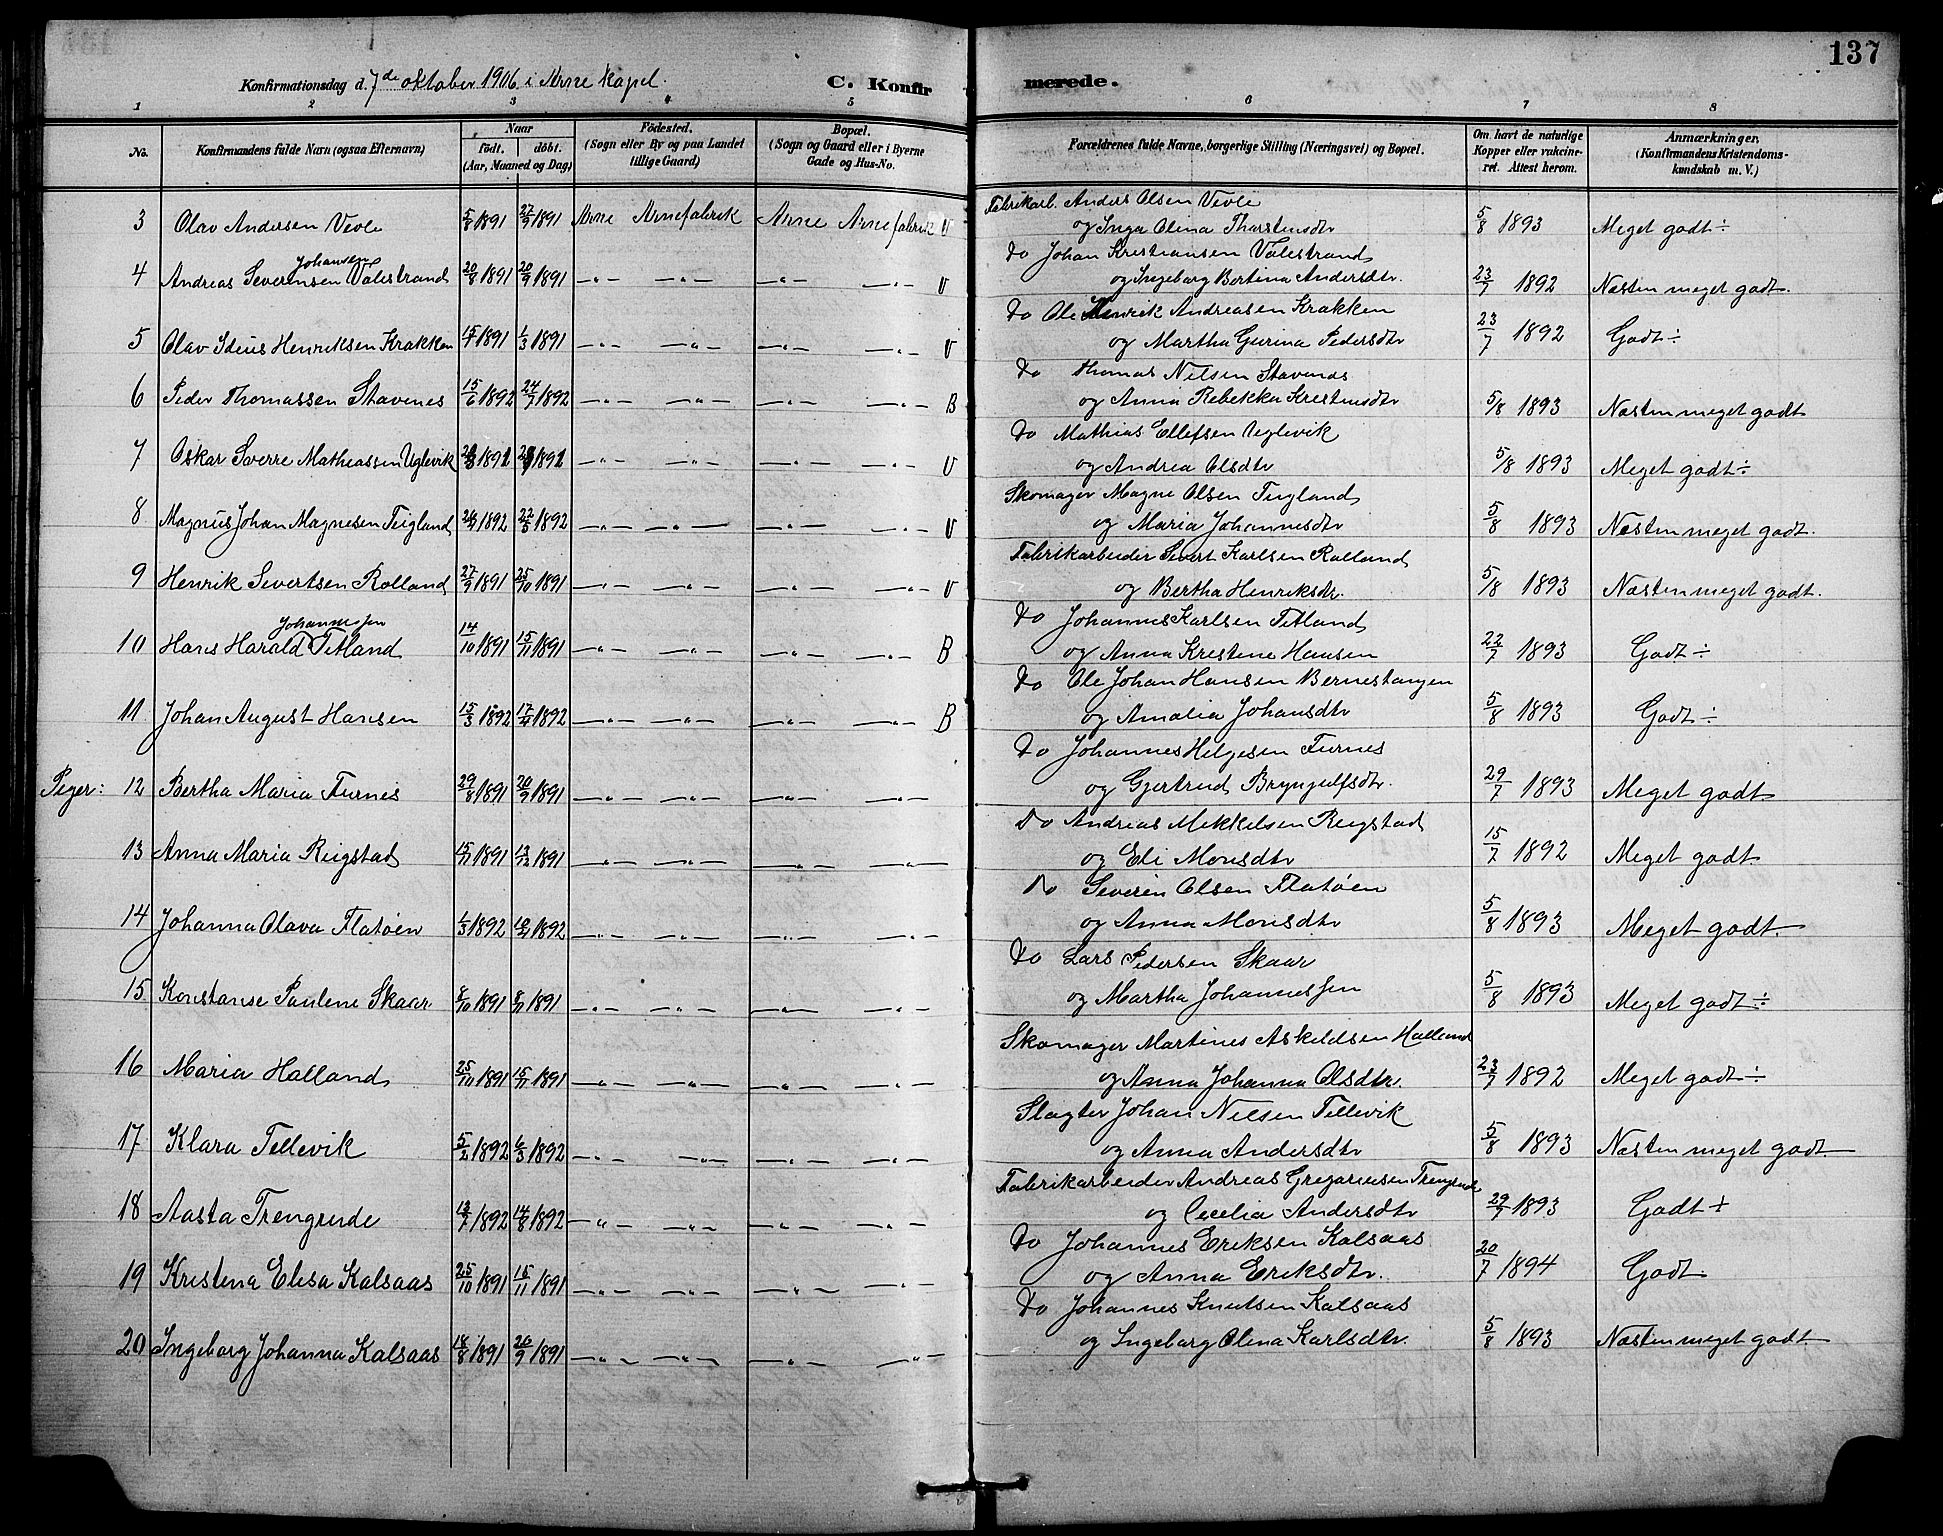 137
Konfirmationsdag d. 7de oktober 1906 i Arne kapel. C. Konfirmerede.
1 2 3 4 5 6 7 8
No. Konfirmandens fulde Navn (ogsaa Efternavn) Naar födt. döbt. (Aar, Maaned og Dag) Födested. (Sogn eller By og paa Landet tillige Gaard) Bopæl. (Sogn og Gaard eller i Byerne Gade og Hus-No. Forældrenes fulde Navne, borgerlige Stilling (Næringsvei) og Bopæl. Om havt de naturlige Kopper eller vakcineret. Attest herom. Anmærkninger, (Konfirmandens Kristendomskundskab m. V.)
Fabrikarb. Anders Olsen Vevle
3 Olav Andersen Vevle 5/8 1891 27/9 1891 Arne Arnefabrik Arne Arnefabrik V og Inga Olina Thorstensdtr 5/8 1893 Meget godt ÷
Johansen do Johan Kristiansen Valestrand
4 Andreas Severinsen Valestrand 20/8 1891 20/9 1891 —„— —„— —„— —„— V og Ingeborg Bertina Andersdtr. 23/7 1892 Næsten meget godt.
do Ole Henrik Andreasen Krakken
5 Olav Idius Henriksen Krakken 1891 1/3 1891 —„— —„— —„— —„— V og Martha Gurina Pedersdtr 23/7 1892 Godt ÷
do Thomas Nilsen Stavenes
6 Peder Thomassen Stavenes 15/6 1892 24/7 1892 —„— —„— —„— —„— B og Anna Rebekka Kristensdtr 5/8 1893 Næsten meget godt
do Mathias Ellefsen Uglevik
7 Oskar Sverre Mathiassen Uglevik —„— —„— —„— —„— V og Andrea Olsdtr 5/8 1893 Meget godt ÷
Skomager Magne Olsen Teigland
8 Magnus Johan Magnesen Teigland 1892 22/5 1892 —„— —„— —„— —„— V og Maria Johannesdtr 5/8 1893 Næsten meget godt.
Fabrikarbeider Sivert Karlsen Rolland
9 Henrik Sivertsen Rolland 27/9 1891 25/10 1891 —„— —„— —„— —„— V og Bertha Henriksdtr. 5/8 1893 Næsten meget godt.
Johannesen do Johannes Karlsen Titland
10 Hans Harald Titland 14/10 1891 15/11 1891 —„— —„— —„— —„— B og Anna Kristine Hansen 22/7 1893 Godt ÷
do Ole Johan Hansen Bernestangen
11. Johan August Hansen 15/3 1892 17/4 1892 —„— —„— —„— —„— B og Amalia Johansdtr 5/8 1893 Godt ÷
do Johannes Helgesen Furnes
Piger: 12 Bertha Maria Furnes 29/8 1891 20/9 1891 —„— —„— —„— —„— og Gjertrud Brynjulfsdtr. 29/7 1893 Meget godt
do Andreas Mikkelsen Reigstad
13 Anna Maria Reigstad 15/11 1891 13/12 1891 —„— —„— —„— —„— og Eli Monsdtr 15/7 1892 Meget godt
do Severin Olsen Flatøen
14 Johanna Olava Flatøen 1/3 1892 1892 —„— —„— —„— —„— og Anna Monsdtr 5/8 1893 Meget godt.
do Lars Pedersen Skaar
15 Konstanse Pauline Skaar 8/10 1891 8/11 1891 —„— —„— —„— —„— og Martha Johannesen 5/8 1893 Meget godt ÷
Skomager Martines Askildsen Halland
16 Maria Halland 25/10 1891 15/11 1891 —„— —„— —„— —„— og Anna Johanna Olsdtr. 23/7 1892 Meget godt ÷
Slagter Johan Nilsen Tellevik
17 Klara Tellevik 5/2 1892 6/3 1892 —„— —„— —„— —„— og Anna Andersdtr 5/8 1893 Næsten meget godt
Fabrikarbeider Andreas Gregoriusen Trengrude
18 Aasta Trengrude 13/7 1892 14/8 1892 —„— —„— —„— —„— og Cecelia Andersdtr 29/7 1893 Godt +
do Johannes Eriksen Kalsaas
19 Kristina Elisa Kalsaas 25/10 1891 15/11 1891 —„— —„— —„— —„— og Anna Eriksdtr. 20/7 1894 Godt
do Johannes Knutsen Kalsaas
20 Ingeborg Johanna Kalsaas 18/8 1891 20/9 1891 —„— —„— —„— —„— og Ingeborg Olina Karlsdtr. 5/8 1893 Næsten meget godt